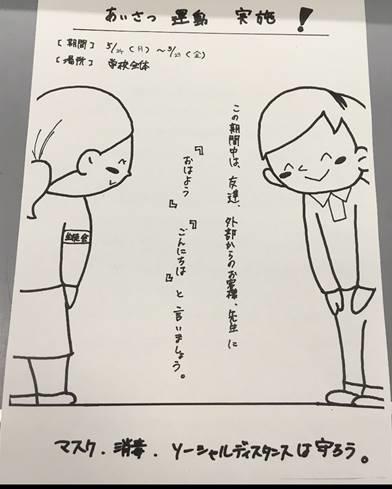 あいさつ運動 実施!
[期間] 5/24(月)〜5/28(金)
[場所] 学校全体
この期間中は、友達、外部からのお客様、先生に
『おはよう』
『こんにちは』と言いましょう。
生徒会
マスク.消毒.ソーシャルディスタンスは守ろう。